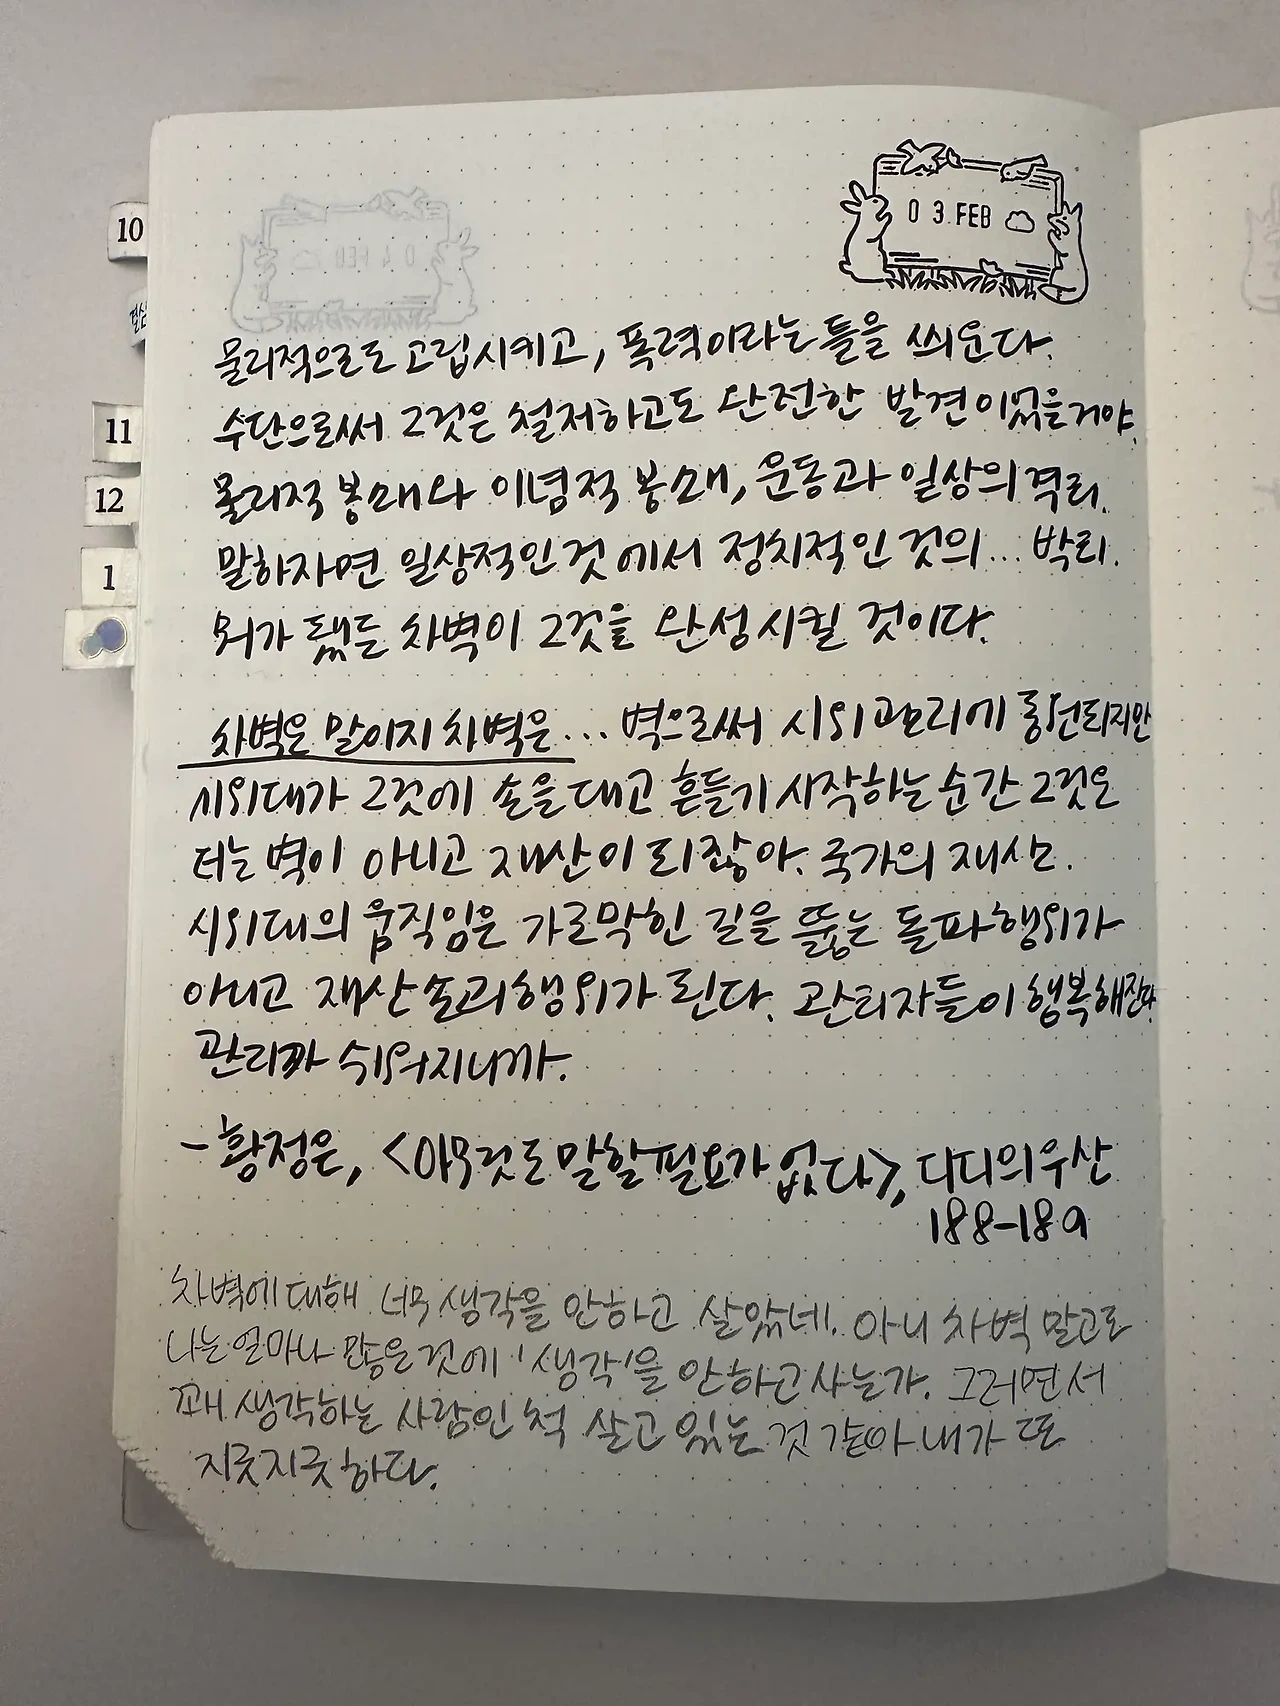 03 FEB
10
11
12
1
물리적으로도 고립시키고, 폭력이라는 틀을 씌운다.
수단으로써 그것은 철저하고도 완전한 발견이었을거야.
물리적 봉쇄와 이념적 봉쇄, 운동과 일상의 격리.
말하자면 일상적인 것에서 정치적인 것의... 박리.
뭐가 됐든 차벽이 그것을 완성시킬 것이다.
차벽은 말이지 차벽은... 벽으로써 시위관리에 동원되지만
시위대가 그것에 손을 대고 흔들기 시작하는 순간 그것은
더는 벽이 아니고 재산이 되잖아. 국가의 재산.
시위대의 움직임은 가로막힌 길을 뚫는 돌파행위가
아니고 재산손괴행위가 된다. 관리자들이 행복해진다.
관리가 쉬워지니까.
- 황정은, <아무것도 말할 필요가 없다>, 디디의 우산
188-189
차벽에 대해 너무 생각을 안하고 살았네. 아니 차벽 말고도
나는 얼마나 많은 것에 '생각'을 안하고 사는가. 그러면서
꽤 생각하는 사람인 척 살고 있는 것 같아 내가 또
지긋지긋하다.